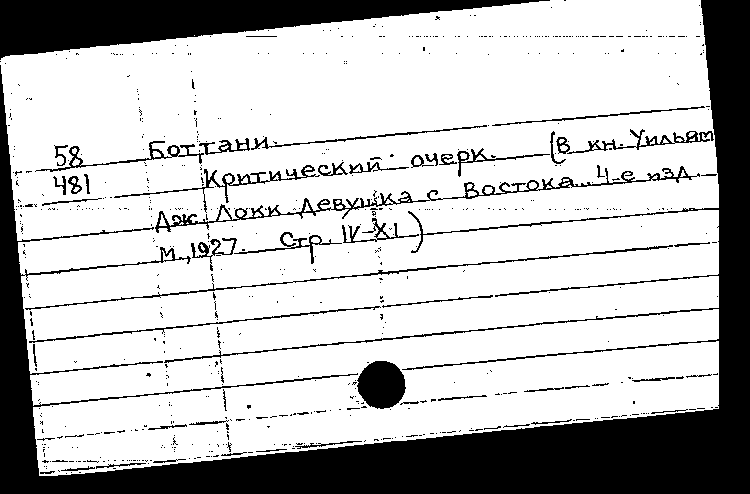 58 Боттани.
481 Критический очерк. (В кн. Уильям
Дж. Локк. Девушка с Востока. 4-е изд.
М., 1927. Стр. IV-XI)